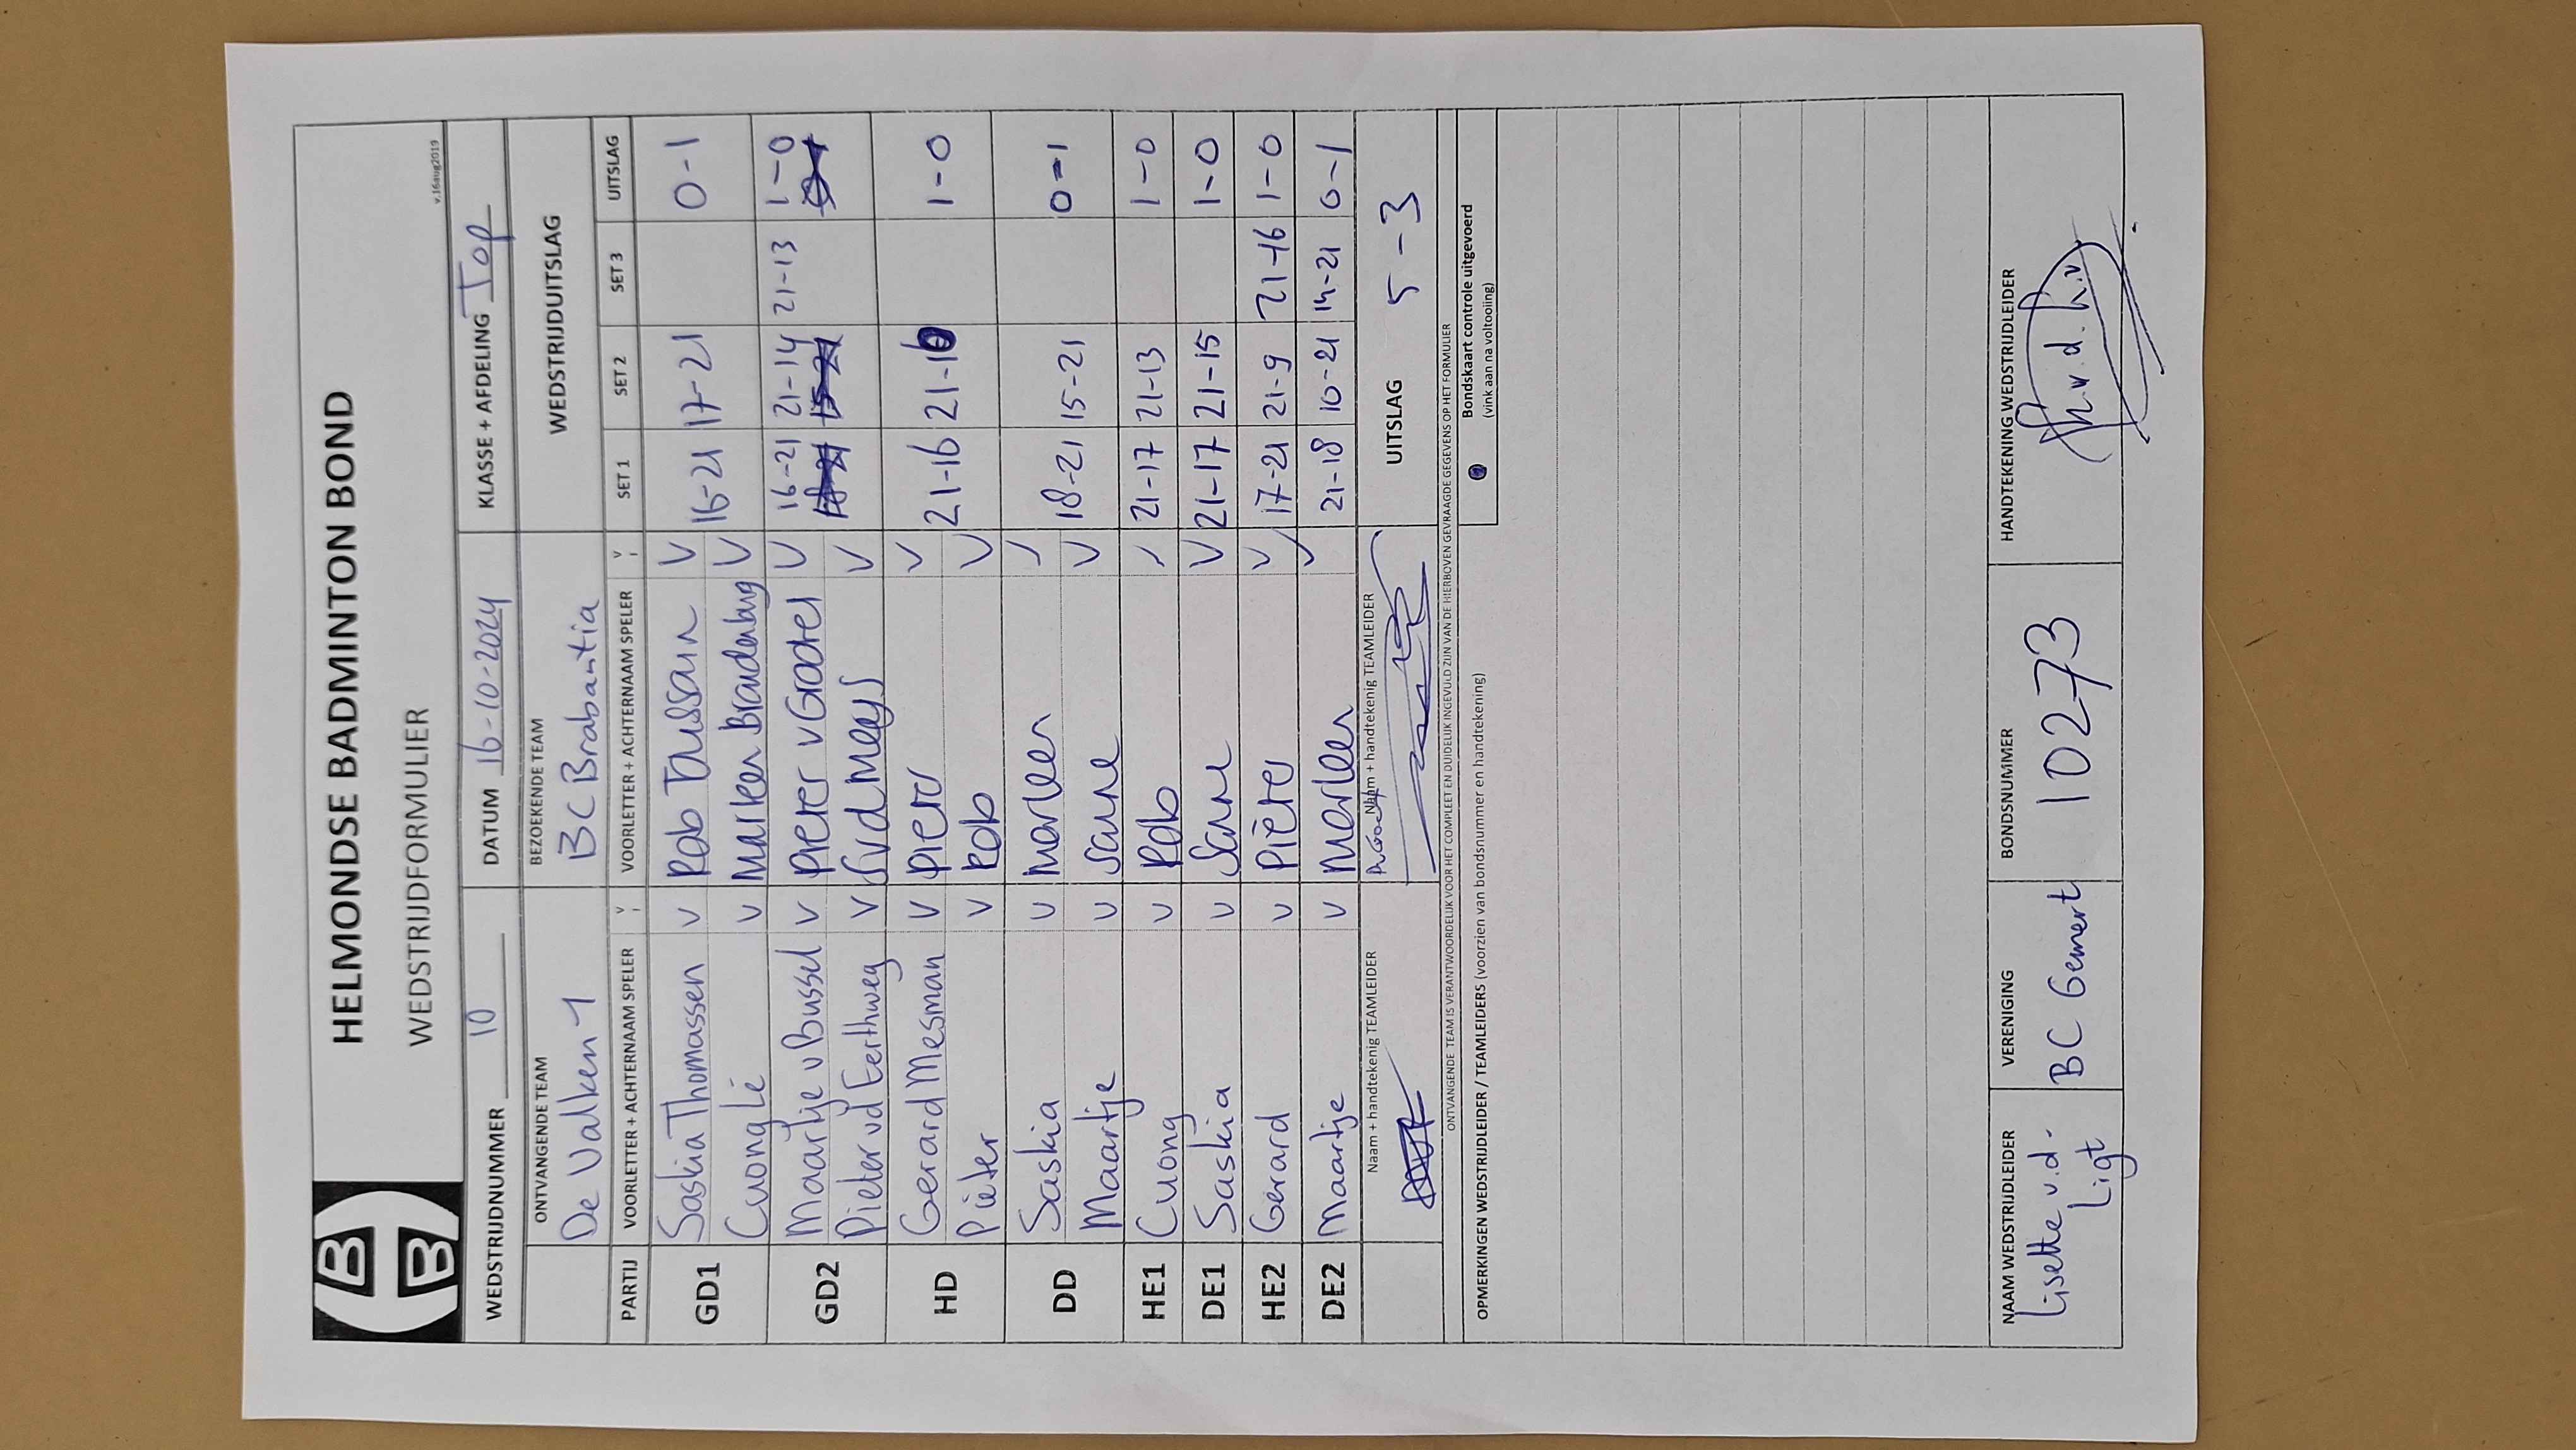 HELMONDSE BADMINTON BOND
WEDSTRIJDFORMULIER
v.16aug2019
WEDSTRIJDNUMMER 10 DATUM 16-10-2024 KLASSE + AFDELING Top
ONTVANGENDE TEAM BEZOEKENDE TEAM WEDSTRIJDUITSLAG
De Valken 1 BC Brabantia
PARTIJ VOORLETTER + ACHTERNAAM SPELER V VOORLETTER + ACHTERNAAM SPELER V SET 1 SET 2 SET 3 UITSLAG
GD1 Saskia Thomassen V Rob V 16-21 17-21 0-1
Cuong Lé V Marleen Brandenburg V
GD2 Maartje v Bussel V Pieter v Grootel V 16-21 21-14 21-13 1-0
Pieter vd Eerthweg V V
HD Gerard Mesman V Pieter V 21-16 21-16 1-0
Pieter V Rob V
DD Saskia V Marleen V 18-21 15-21 0-1
Maartje V Sanne V
HE1 Cuong V Rob V 21-17 21-13 1-0
DE1 Saskia V Sanne V 21-17 21-15 1-0
HE2 Gerard V Pieter V 17-21 21-9 21-16 1-0
DE2 Maartje V Marleen V 21-18 10-21 14-21 0-1
Naam + handtekenig TEAMLEIDER Naam + handtekenig TEAMLEIDER UITSLAG 5-3
ONTVANGENDE TEAM IS VERANTWOORDELIJK VOOR HET COMPLEET EN DUIDELIJK INGEVULD ZIJN VAN DE HIERBOVEN GEVRAAGDE GEGEVENS OP HET FORMULIER
OPMERKINGEN WEDSTRIJDLEIDER / TEAMLEIDERS (voorzien van bondsnummer en handtekening)
Bondskaart controle uitgevoerd
(vink aan na voltooiing)
NAAM WEDSTRIJDLEIDER VERENIGING BONDSNUMMER HANDTEKENING WEDSTRIJDLEIDER
Lisette v.d. BC Gemert 10273
Ligt